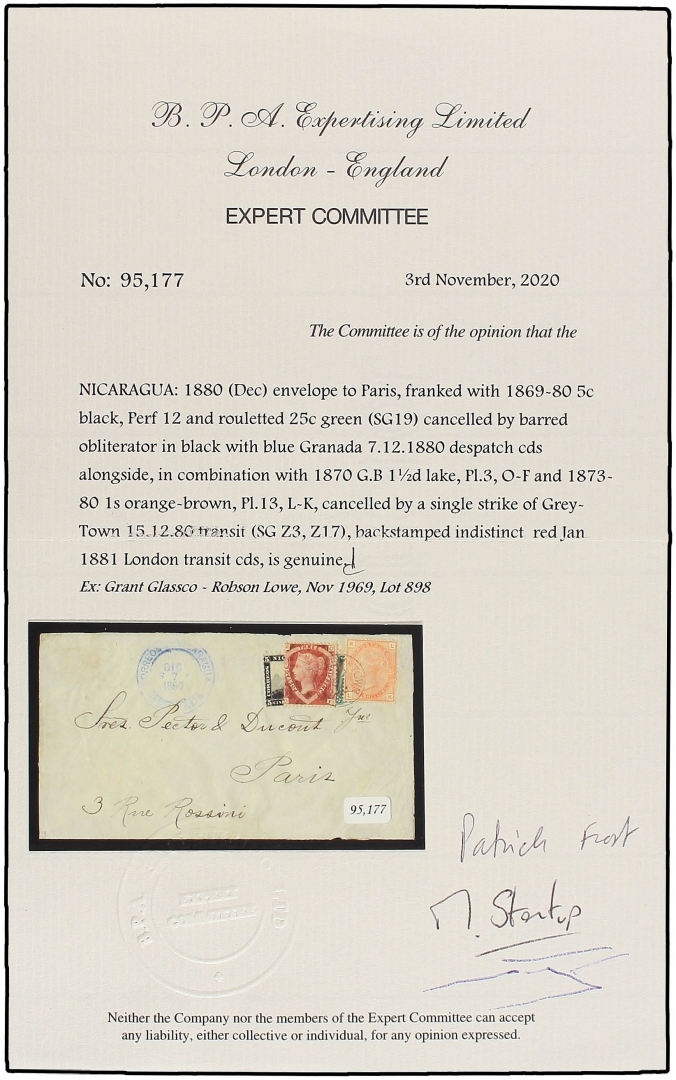 B. P. A. Expertising Limited
London - England
EXPERT COMMITTEE
No: 95,177 3rd November, 2020
The Committee is of the opinion that the
NICARAGUA: 1880 (Dec) envelope to Paris, franked with 1869-80 5c
black, Perf 12 and rouletted 25c green (SG19) cancelled by barred
obliterator in black with blue Granada 7.12.1880 despatch cds
alongside, in combination with 1870 G.B 1½d lake, Pl.3, O-F and 1873-
80 1s orange-brown, Pl.13, L-K, cancelled by a single strike of Grey-
Town 15.12.80 transit (SG Z3, Z17), backstamped indistinct red Jan
1881 London transit cds, is genuine.
Ex: Grant Glassco - Robson Lowe, Nov 1969, Lot 898
DIC
7
1880
THREE
Sres. Pector & Ducout Jne
Paris
3 Rue Rossini
95,177
Patrick Frost
M. Startup
B.P.A.
EXPERT
COMMITTEE
Neither the Company nor the members of the Expert Committee can accept
any liability, either collective or individual, for any opinion expressed.